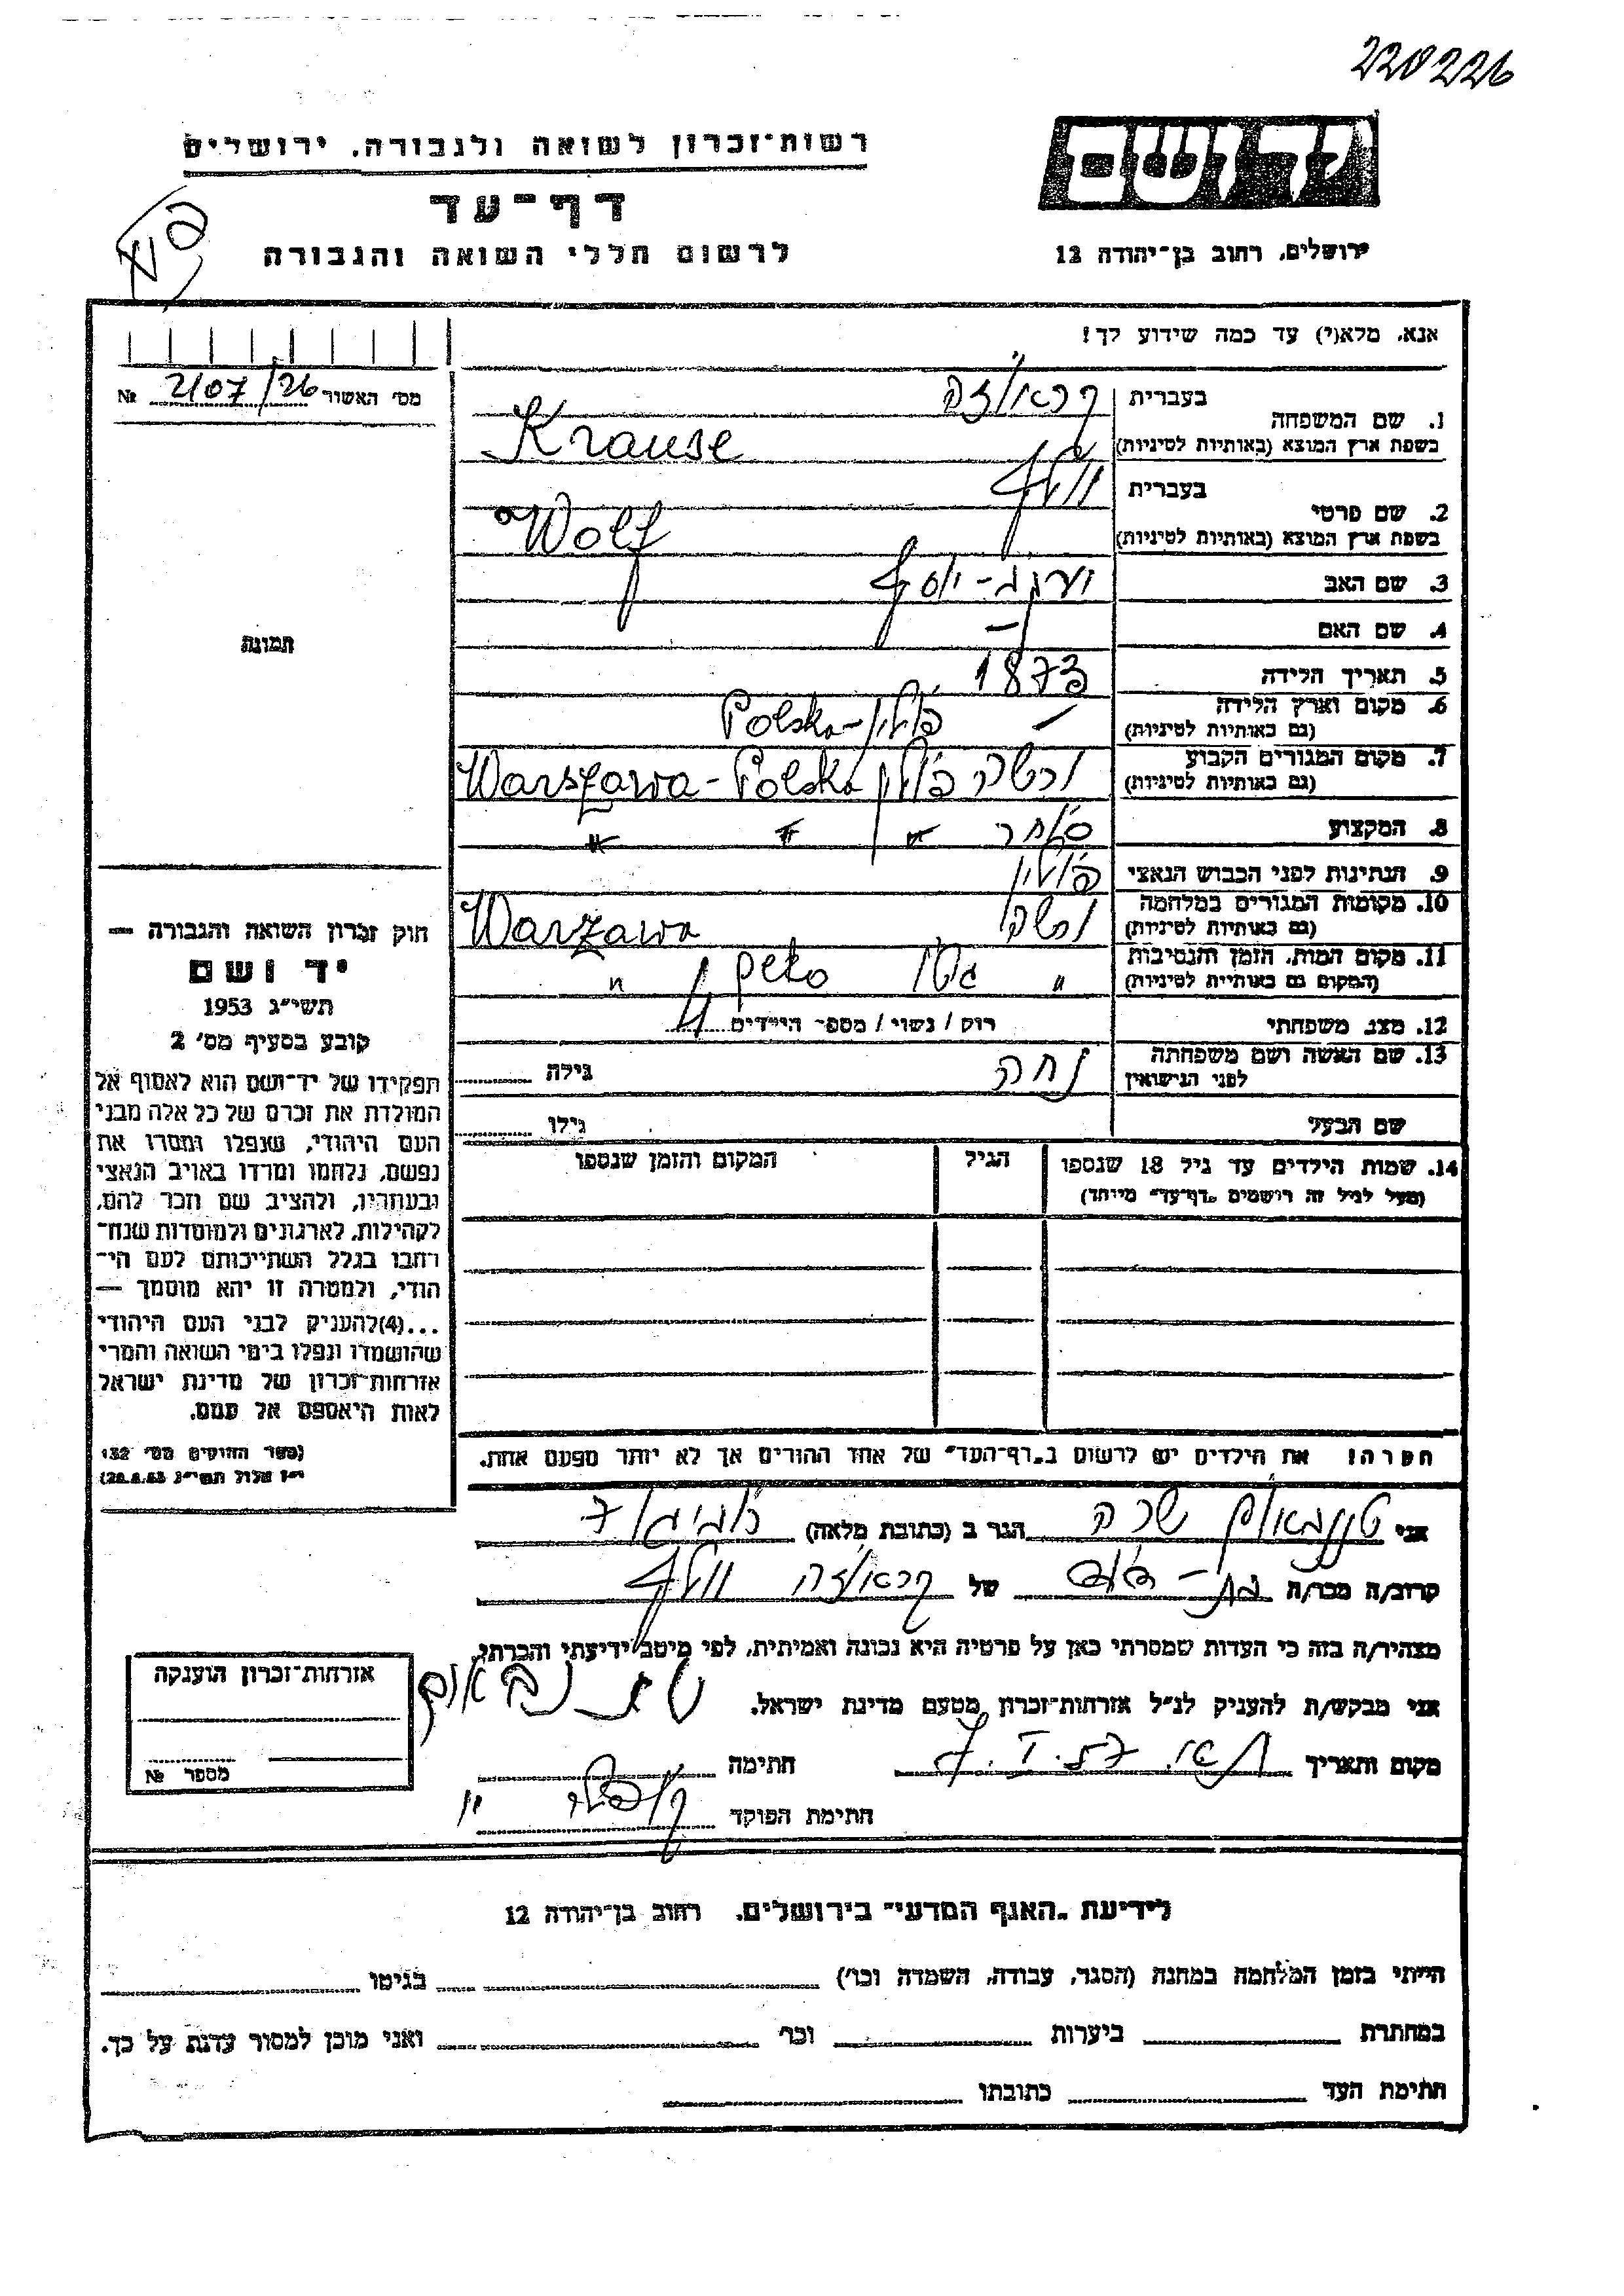 220226
רשות־זכרון לשואה ולגבורה, ירושלים
יד ושם
דף־עד
לרשום חללי השואה והגבורה
ירושלים, רחוב בן־יהודה 12
אנא, מלא(י) עד כמה שידוע לך!
מס' האשור 2107/26 №
1. שם המשפחה
בעברית קראוזה
בשפת ארץ המוצא (באותיות לטיניות) Krause
2. שם פרטי
בעברית וולף
בשפת ארץ המוצא (באותיות לטיניות) Wolf
3. שם האב יעקב-יוסף
4. שם האם —
5. תאריך הלידה 1873
6. מקום וארץ הלידה
(גם באותיות לטיניות) — פולין-Polska
7. מקום המגורים הקבוע
(גם באותיות לטיניות) ורשה פולין Warszawa-Polska
8. המקצוע סוחר
9. הנתינות לפני הכבוש הנאצי פולין
10. מקומות המגורים במלחמה
(גם באותיות לטיניות) ורשה Warzawa
11. מקום המות, הזמן והנסיבות
(המקום גם באותיות לטיניות) " גטו "
12. מצב משפחתי רווק / נשוי / מספר הילדים 4
13. שם האשה ושם משפחתה
לפני הנישואין גילה
שם הבעל גילו
14. שמות הילדים עד גיל 18 שנספו
(מעל לגיל זה רושמים „דף־עד" מיוחד)
הגיל
המקום והזמן שנספו
תמונה
חוק זכרון השואה והגבורה —
יד ושם
תשי"ג 1953
קובע בסעיף מס' 2
תפקידו של יד־ושם הוא לאסוף אל
המולדת את זכרם של כל אלה מבני
העם היהודי, שנפלו ומסרו את
נפשם, נלחמו ומרדו באויב הנאצי
ובעוזריו, ולהציב שם וזכר להם,
לקהילות, לארגונים ולמוסדות שנח־
רבו בגלל השתייכותם לעם הי־
הודי, ולמטרה זו יהא מוסמך —
...(4) להעניק לבני העם היהודי
שהושמדו ונפלו בימי השואה והמרי
אזרחות־זכרון של מדינת ישראל
לאות היאספם אל עמם.
(ספר החוקים מס' 132
י"ז אלול תשי"ג 28.8.53)
הערה! את הילדים יש לרשום ב„דף־העד" של אחד ההורים אך לא יותר מפעם אחת.
אני טננבאום שרה הגר ב (כתובת מלאה)
קרוב/ה מכר/ה של קראוזה וולף
מצהיר/ה בזה כי העדות שמסרתי כאן על פרטיה היא נכונה ואמיתית, לפי מיטב ידיעתי והכרתי.
אני מבקש/ת להעניק לנ"ל אזרחות־זכרון מטעם מדינת ישראל.
מקום ותאריך חתימה
חתימת הפוקד
אזרחות־זכרון הוענקה
מספר №
לידיעת „האגף המדעי" בירושלים, רחוב בן־יהודה 12
הייתי בזמן המלחמה במחנה (הסגר, עבודה, השמדה וכו') בגיטו
במחתרת ביערות וכו' ואני מוכן למסור עדות על כך.
חתימת העד כתובתו